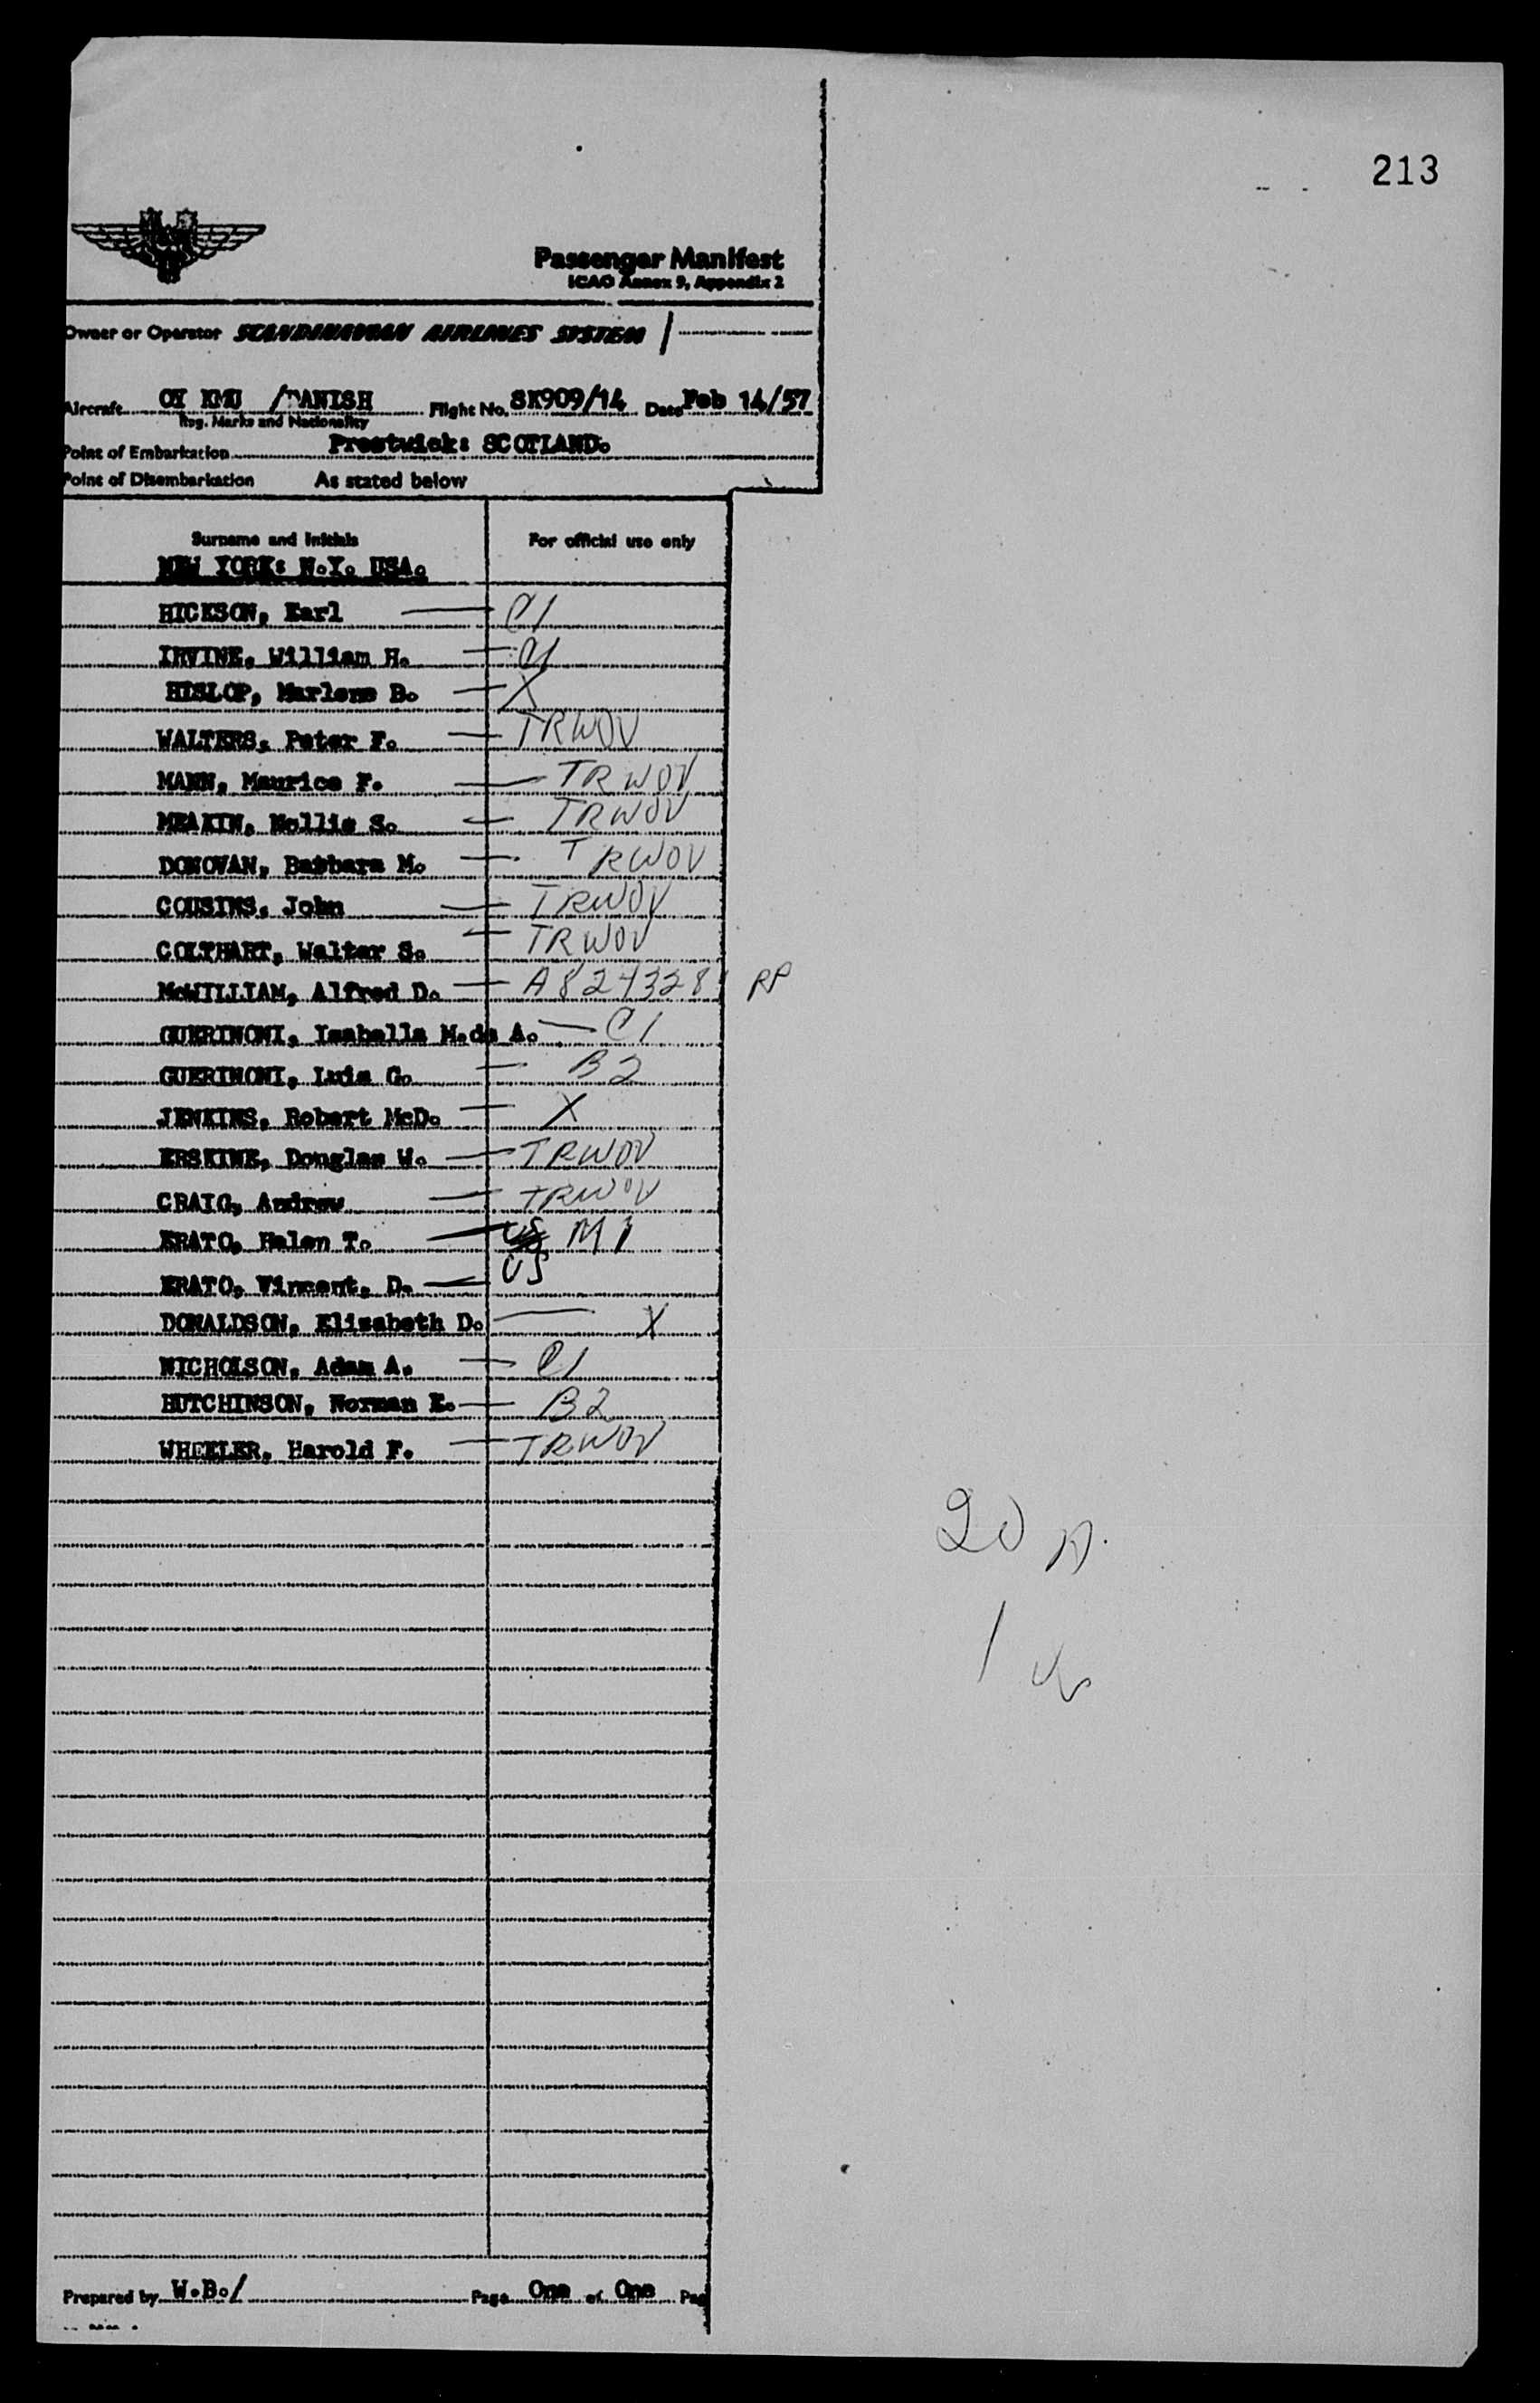 213
Passenger Manifest
ICAO Annex 9, Appendix 2
Owner or Operator SCANDINAVIAN AIRLINES SYSTEM /
Aircraft OY KMU /DANISH Flight No. SK909/14 Date Feb 14/57
Reg. Marks and Nationality
Point of Embarkation Prestwick: SCOTLAND.
Point of Disembarkation As stated below
Surname and Initials For official use only
NEW YORK: N.Y. USA.
HICKSON, Earl — C1
IRVINE, William H. — C1
HISLOP, Marlene B. — X
WALTERS, Peter F. — TRWOV
MANN, Maurice F. — TRWOV
MEAKIN, Nollie S. — TRWOV
DONOVAN, Barbara M. — TRWOV
COUSINS, John — TRWOV
COLTHART, Walter S. — TRWOV
McWILLIAM, Alfred D. — A8243281 RP
GUERINONI, Isabella M.de A. — C1
GUERINONI, Luis G. — B2
JENKINS, Robert McD. — X
ERSKINE, Douglas W. — TRWOV
CRAIG, Andrew — TRWOV
ERATO, Helen T. — US M1
ERATO, Vincent, D. — US
DONALDSON, Elizabeth D. — X
NICHOLSON, Adam A. — C1
HUTCHINSON, Norman E. — B2
WHEELER, Harold F. — TRWOV
20 A.
1 US
Prepared by W.B./ Page One of One